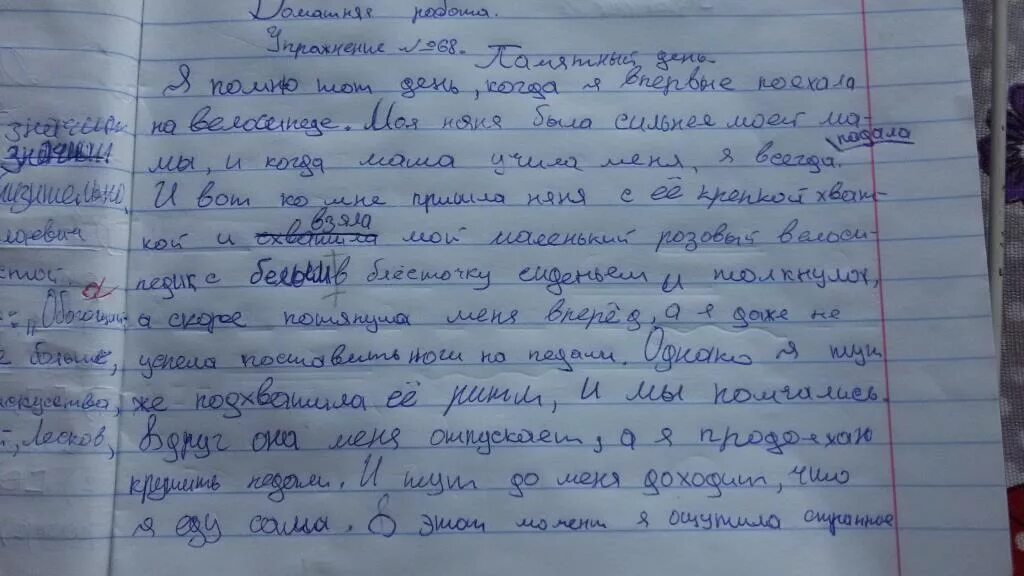 Домашняя работа.
Упражнение №268.
Памятный день.
Я помню тот день, когда я впервые поехала
на велосипеде. Моя няня была сильнее моей ма-
мы, и когда мама учила меня, я всегда падала.
И вот ко мне пришла няня с её крепкой хват-
кой и взяла мой маленький розовый велоси-
педик с белым в блёсточку сиденьем и толкнула,
а скорее потянула меня вперёд, а я даже не
успела поставить ноги на педали. Однако я тут
же подхватила её ритм, и мы помчались.
Вдруг она меня отпускает, а я продолжаю
крутить педали. И тут до меня доходит, что
я еду сама. В этот момент я ощутила странное
значит
лаевич
"Обогощ
больше,
искусство,
Лесков,